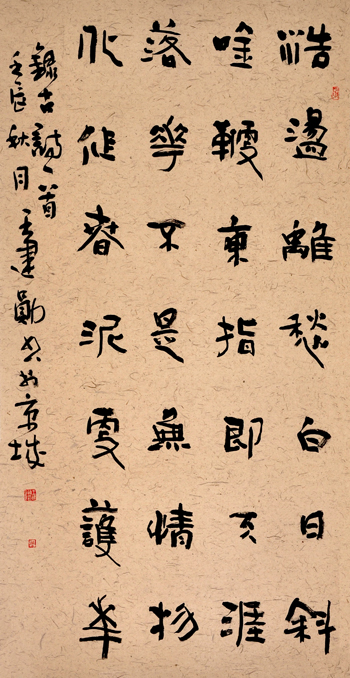 浩盪離愁白日斜
唫鞭東指即天涯
落華不是無情物
化作春泥更護華
錄古詩一首
壬辰秋月
王建勛書於京城